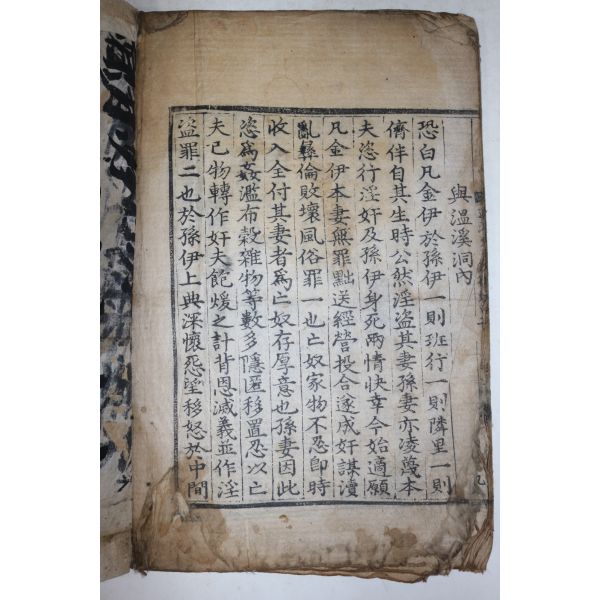 與溫溪洞內
恐白凡金伊於孫伊一則班行一則隣里一則
儕伴自其生時公然淫盜其妻孫妻亦凌蔑本
夫恣行淫奸及孫伊身死兩情快幸今始適願
凡金伊本妻無罪黜送經營投合遂成奸謀瀆
亂彝倫敗壞風俗罪一也亡奴家物不忍即時
收入全付其妻者爲亡奴存厚意也孫妻因此
恣爲姦濫布穀雜物等數多隱匿移置忍以亡
夫已物轉作奸夫飽煖之計背恩滅義並作淫
盜罪二也於孫伊上典深懷怨望移怒於中間